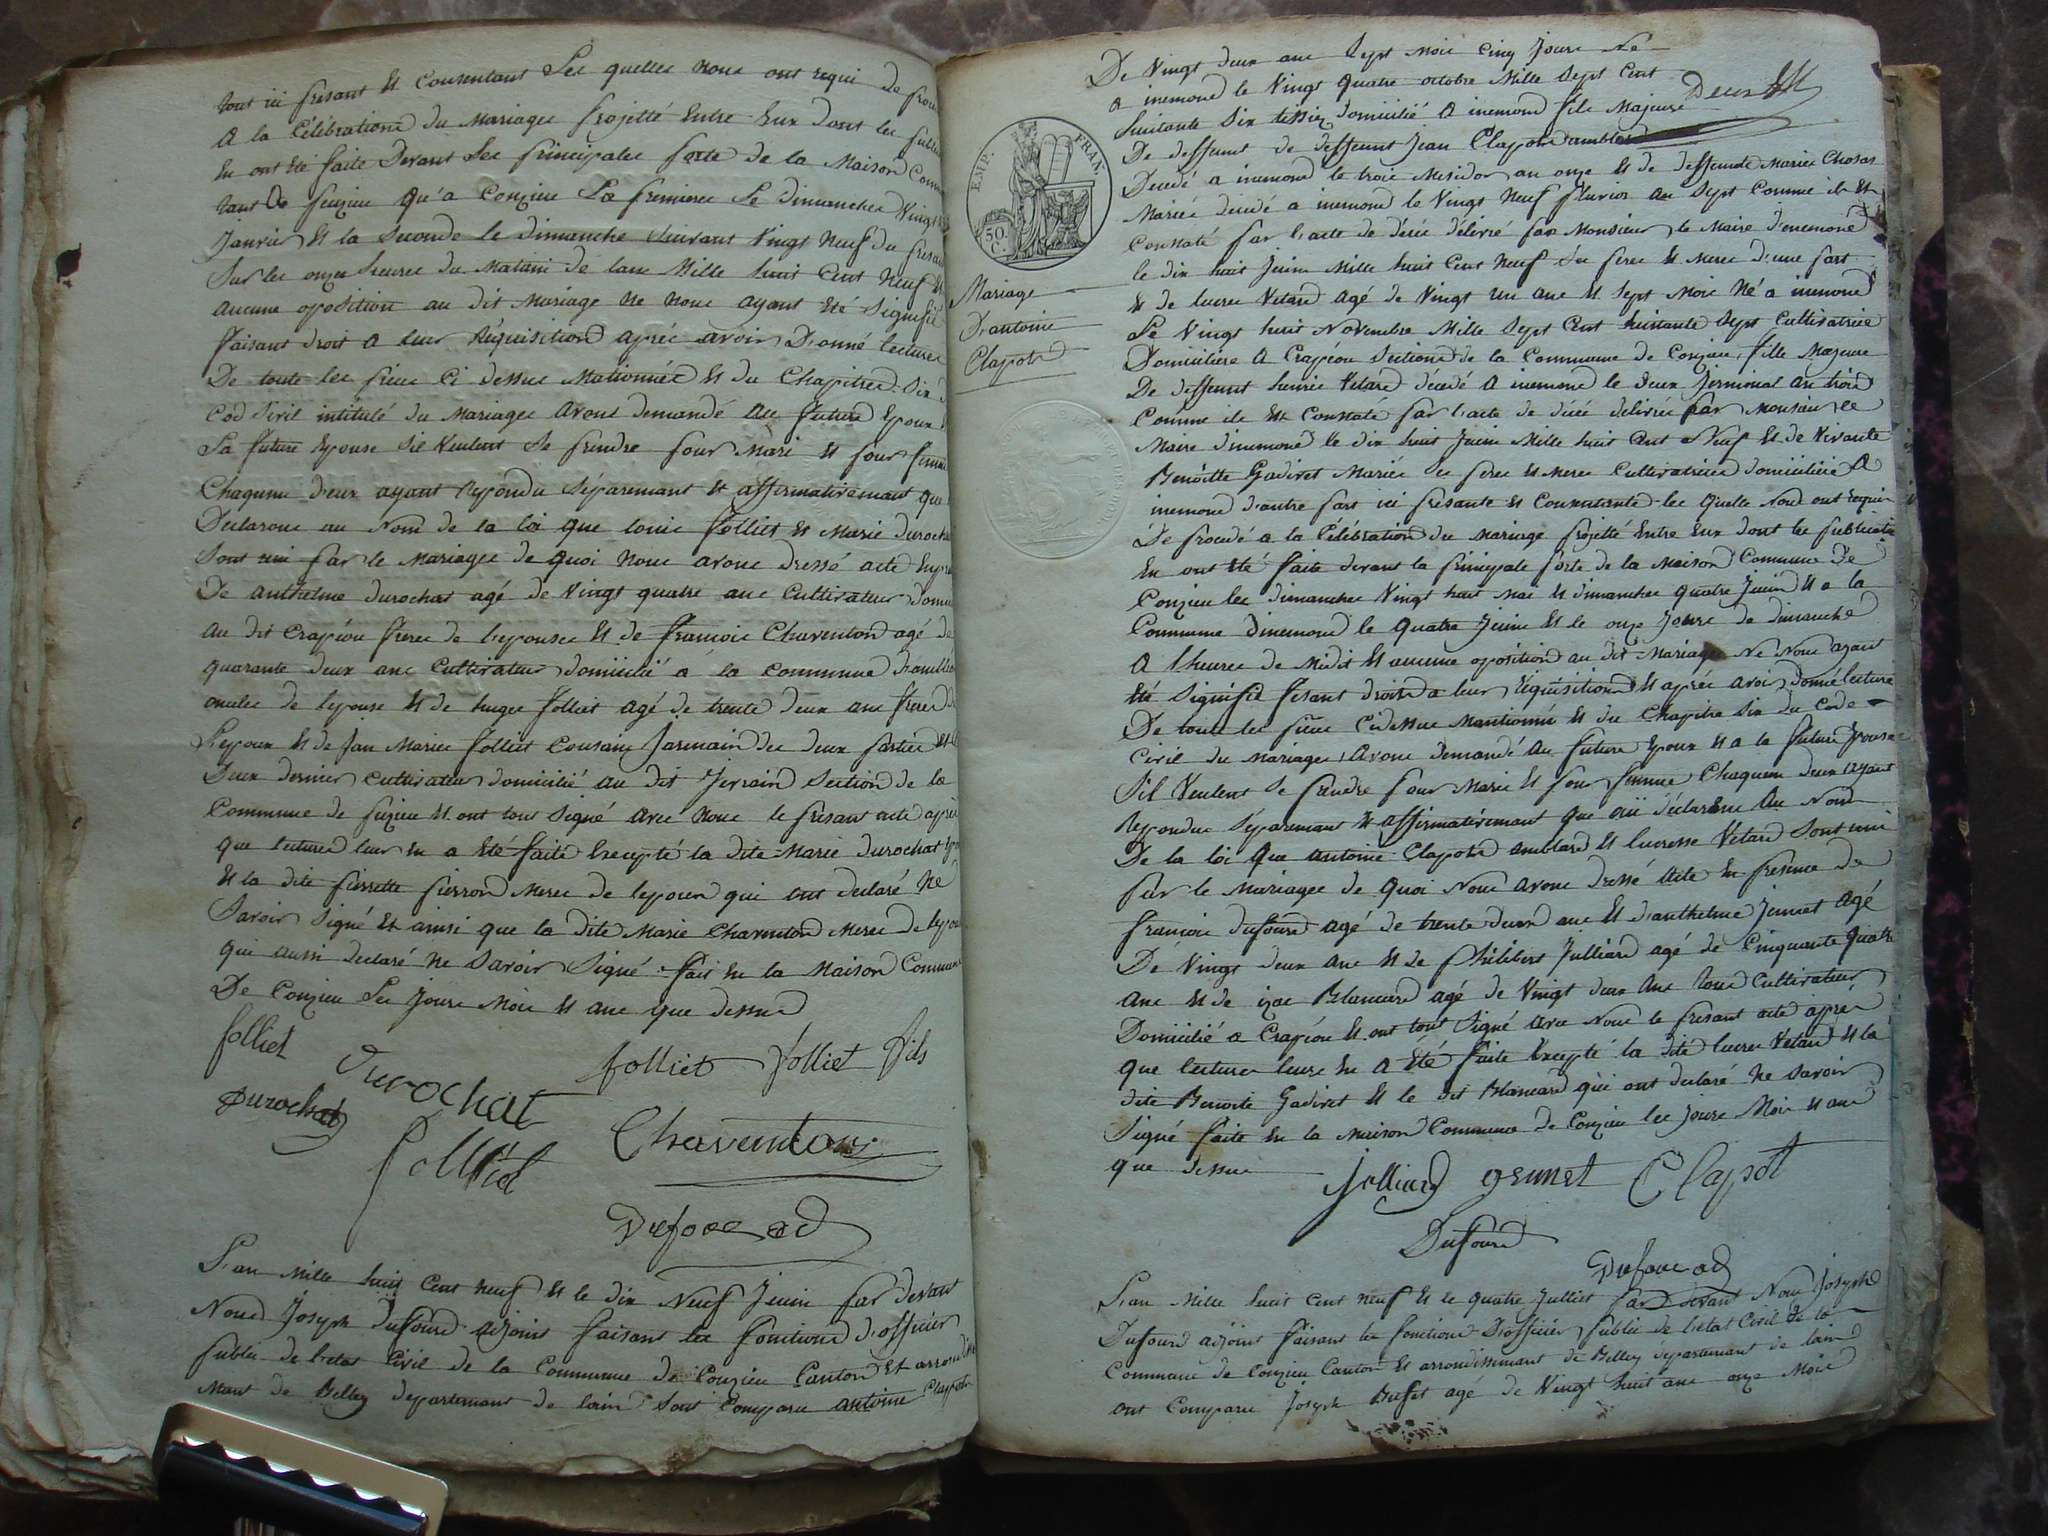 tout ici présant et Consentant Les quelles nous ont requi de
A la Célébration du Mariage projetté Entre Eux dont les
En ont Eté faite Devant Les principales porte de la Maison Com
tant De peuzieu Qu'a Conzieu La premiere Le Dimanche Vingt
Janvier Et la Seconde le dimanche suivant Vingt Neuf du
Sur les onze heures du Matain de lanc Mille huit Cent Neuf
aucune oposition au dit Mariage Ne Nous ayant Eté Signifié
faisant droit A leur Réquisition après avoir Donné lecture
De toute les piece Ci dessus Mationnée Et du Chapitre Six
Cod Civil intitulé du Mariage avons demandé au future Epoux
La future Epouse sil Veulent Se prendre pour Mari Et pour femme
Chaqunne D'eux ayant Repondu Séparemant Et affirmativemant que
Declarons au Nom de la loi que louis folliet Et Marie Durochat
Sont uni par le Mariage de quoi Nous avons dressé acte
De anthelme durochat agé de Vingt quatre anc Cultivateur
au dit Crapéou frere de lepouse Et de francois Chaventon agé de
quarante deux anc Cultivateur domicilié a la commune
oncles de lepouse Et de hugue folliet agé de trente deux anc frere
Lepoux Et de Jan Marie folliet Cousain Jarmain des deux partie
Deux dernier Cultivateur domicilié au dit Section de la
Commune de peuzieu Et ont tous Signé avec Nous le présant acte après
que lecture leur En a Eté faite Excepté la dite Marie durochat
Et la dite pierrette pierron Mere de lepoux qui ont declaré Ne
Savoir Signé Et ainsi que la dite Marie Chaventon Mere de
qui aussi declaré Ne Savoir Signé fait En la Maison Commune
De Conzieu Les Jours Mois Et anc que dessus
folliet
Durochat
folliet folliet fils
Durochat
folliet
Chaventon
Dufourd
L'an Mille huit Cent Neuf Et le dix Neuf Juin par devant
Nous Joseph Dufourd adjoint faisant les fonctions d'officier
public de l'etat Civil de la Commune de Conzieu Canton Et
Mant de Belley departemant de lain Sont Comparu antoine Clapot
De Vingt deux anc Sept Mois cinq Jours Né
a inemond le Vingt quatre octobre Mille Sept Cent
huitante Six domicilié A inemond fils Majeure
De deffunt de deffeunt Jean Clapot amblard
Decedé a inemond le trois Mesidor an onze Et de deffeunte Marie
Mariée decedé a inemond le Vingt Neuf pluvios an Sept Comme il Et
Constaté par l'acte de décée délivré par Monsieur le Maire d'inemond
le dix huit Juin Mille huit Cent Neuf du pere Et Mere D'une part
Et de lucres Vetard agé de Vingt un anc Et Sept Mois Né a inemond
Le Vingt huit Novembre Mille Sept Cent huitante Sept Cultivatrice
Domiciliere A Crapéou Sections de la Commune de Conzieu fille Majeure
De deffeunt Vetard décédé A inemond le deux Jerminal an trois
Comme ile Est Constaté par l'acte de décée delivrée par Monsieur le
Maire d'inemond le dix huit Juin Mille huit Cent Neuf Et de Vivante
Benoitte Gadivet Mariée Les pere Et Mere Cultivatrice domiciliere A
inemond d'autre part ici présante Et Consentante les quelle Nous ont requi
De procedé a la Célébration du Mariage projetté Entre Eux dont les publication
En ont Eté faite devant la principale porte de la Maison Commune De
Conzieu les dimanche Vingt huit Mai Et dimanche quatre Juin Et a la
Commune d'inemond le quatre Juin Et le onze Jours de dimanche
A lheure de Midit Et aucune oposition au dit Mariage Ne Nous ayant
Eté Signifié fesant droit a leur Réquisition Et après avoir donné lecture
De toute les piece Cidessus Mantionné Et du Chapitre Six du Code
Civil du Mariage avons demandé au future Epoux Et a la future Epouse
Sil Veulent Se prendre pour Marie Et pour femme Chaquen deux ayant
Repondu Séparemant Et affirmativemant que oui déclarons au Nom
De la loi que antoine Clapot amblard Et lucresse Vetard Sont uni
par le Mariage de quoi Nous avons dressé acte En présence de
francois Dufourd agé de trente deux anc Et d'anthelme Jennet agé
De Vingt deux anc Et de philibert Julliard agé de Cinquante quatre
anc Et de izac Blancard agé de Vingt deux anc tous Cultivateur
Domicilié a Crapéou Et ont tout Signé avec Nous le présant acte après
que lecture leure En a Eté faite Excepté la dite lucres Vetard Et la
dite Benoite Gadivet Et le dit Blancard qui ont declaré Ne Savoir
Signé faite En la Maison Commune de Conzieu les Jours Mois Et anc
que dessus
Julliard gennet Clapot
Dufourd
Dufourd
L'an Mille huit cent Neuf Et le quatre Julliet par Devant Nous Joseph
Dufourd adjoint faisant les fonctions D'officier public de l'etat Civil de la
Commune de Conzieu Canton Et arrondissemant de Belley departemant de lain
ont Comparu Joseph Buffet agé de Vingt huit anc onze Mois
EMP. FRAN.
50. C.
Mariage
D'antoine
Clapot